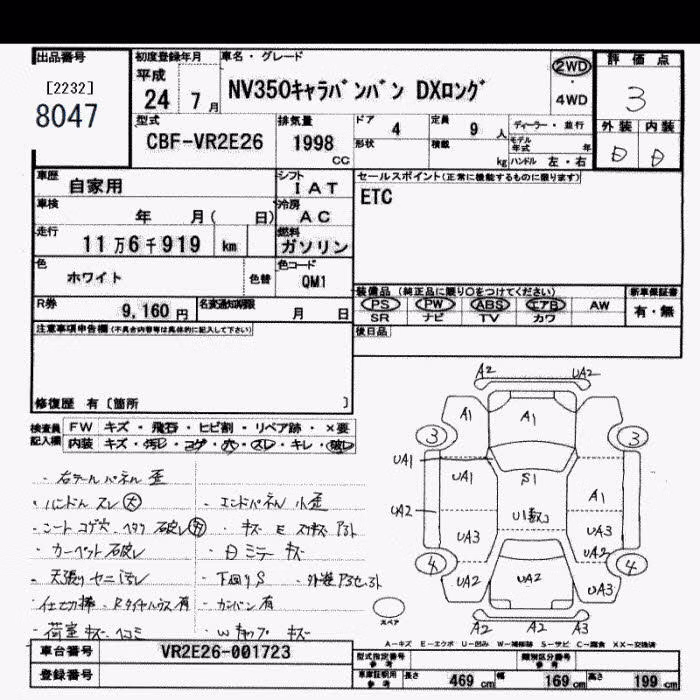 出品番号
[2232]
8047
初度登録年月
平成
24年 7月
車名・グレード
NV350キャラバンバン DXロング
2WD
・
4WD
評価点
3
外装 内装
D D
型式
CBF-VR2E26
排気量
1998
CC
ドア 4
定員 9 人
形状
積載 kg
ディーラー・並行
モデル年式 年
ハンドル 左・右
車歴
自家用
シフト
IAT
セールスポイント(正常に機能するものに限ります)
ETC
車検
年 月( 日)
冷房
AC
走行
11万6千919 km
燃料
ガソリン
色
ホワイト
色替
色コード
QM1
R券
9,160円
名変通知期限
月 日
装備品 (純正品に限り○をつけてください)
PS PW ABS エアB AW
SR ナビ TV カワ
新車保証書
有・無
後日品
注意事項申告欄(不具合内容等は具体的に記入して下さい)
修復歴 有〔箇所 〕
検査員記入欄
FW キズ・飛石・ヒビ割・リペア跡・×要
内装 キズ・汚レ・コゲ・穴・スレ・キレ・破レ
・右テールパネル 歪
・ハンドル スレ大
・エンドパネル 小歪
・シート コゲ穴
・カーペット 破レ
・天張り ヤニ汚レ
・下回りS
・荷室 キズ
A2 UA2
A1 A1
3 3
UA1 S1
UA1 A1
UA2 U1数コ
UA3 UA3
UA2
4 4
UA2 UA2 UA3
A2 A2 A3
スペア
A-キズ E-エクボ U-凹み W-補修跡 S-サビ C-腐食 XX-交換済
車台番号
VR2E26-001723
登録番号
型式指定番号
参考
類別区分番号
参考
車庫証明用
参考
長さ 469 cm 幅 169 cm 高さ 199 cm